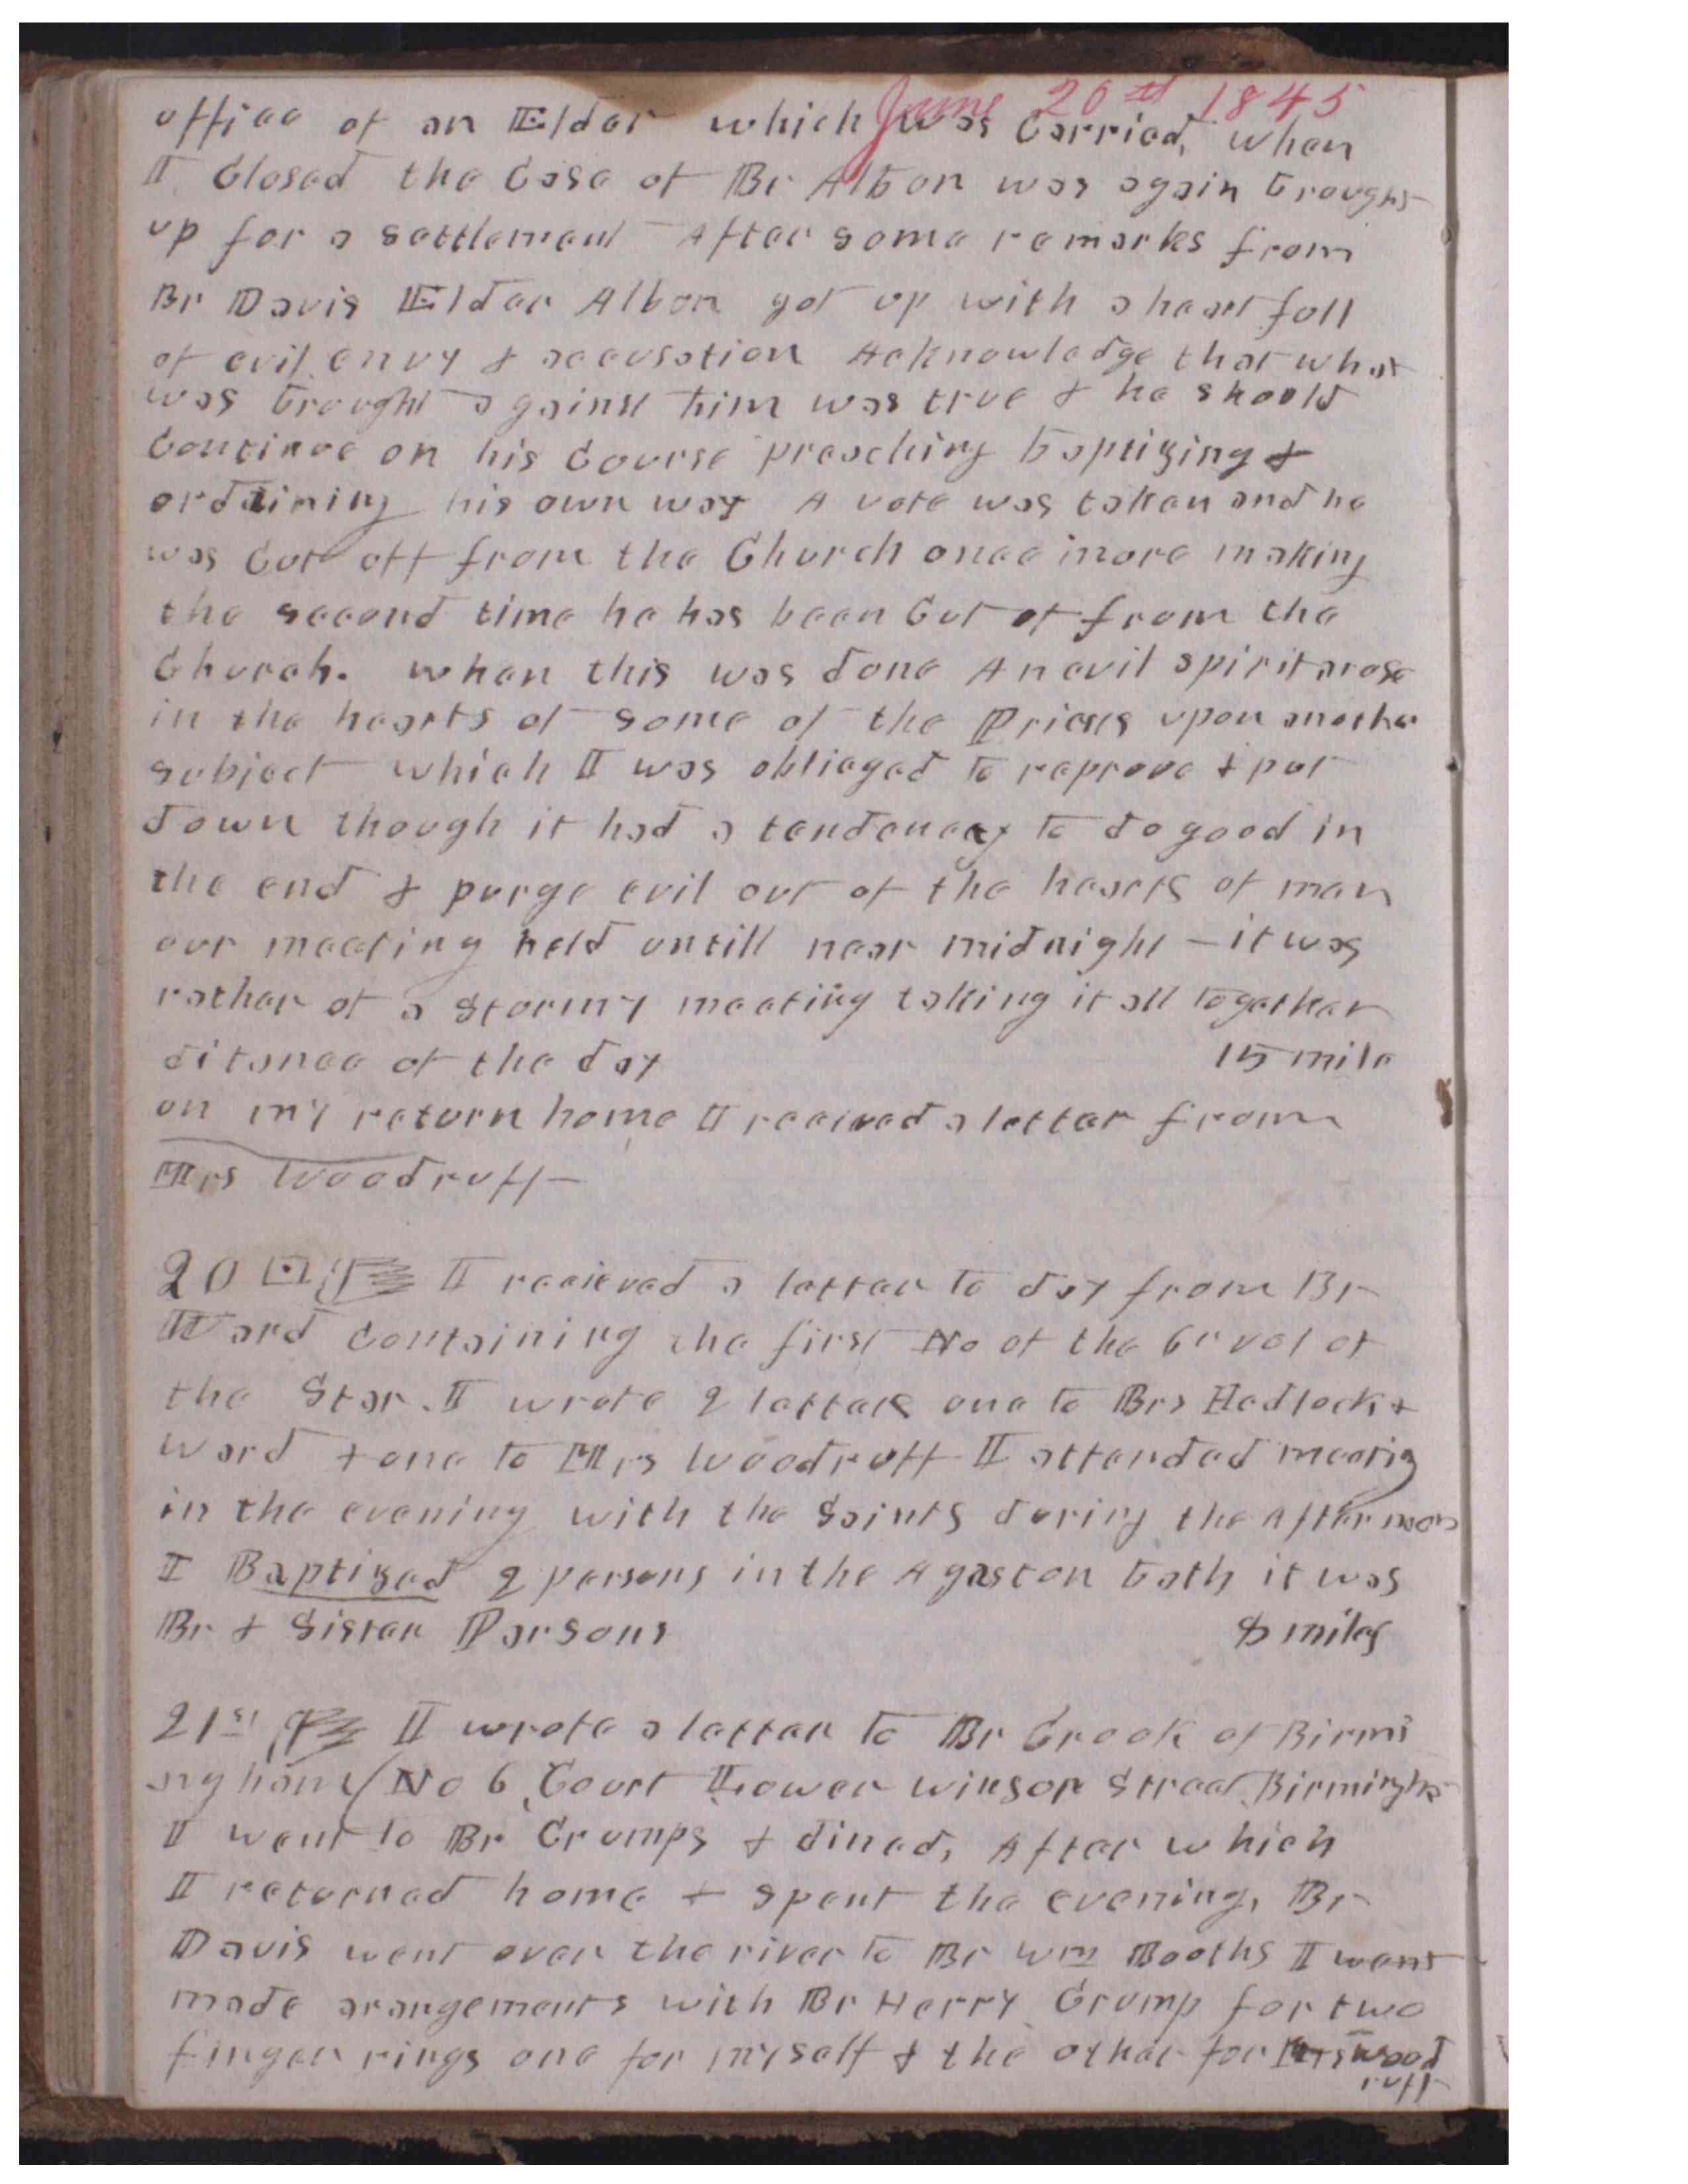 June 20th 1845
office of an Elder which was Carried, when
I Closed the Case of Br Albon was again brought
up for a settlement After some remarks from
Br Davis Elder Albon got up with a heart full
of evil envy & accusation Acknowledge that what
was brought against him was true & he should
Continue on his Course preaching baptizing &
ordaining his own way A vote was taken and he
was Cut off from the Church once more making
the second time he has been Cut of from the
Church. when this was done An evil spirit arose
in the hearts of some of the Priests upon another
subject which I was oblieged to reprove & put
down though it had a tendency to do good in
the end & purge evil out of the hearts of men
our meeting held untill near midnight – it was
rather of a stormy meeting taking it all together
ditance of the day 15 mile
on my return home I recieved a letter from
Mrs Woodruff
20 I recieved a letter to day from Br
Ward Containing the first No of the 6th vol of
the Star. I wrote 2 letters one to Brs Hedlock &
Ward & one to Mrs Woodruff I attended meetig
in the evening with the Saints during the Afternoon
I Baptized 2 persons in the Agaston bath it was
Br & Sister Parsons 8 miles
21st I wrote a letter to Br Crook of Birmi
ngham (No 6 Court Lower Winsor Street Birmingha
I went to Br Crumps & dined, After which
I returned home & spent the evening, Br
Davis went over the river to Br Wm Booths I went
made arangements with Br Harry Crump for two
finger rings one for myself & the other for Mrs Wood
ruff